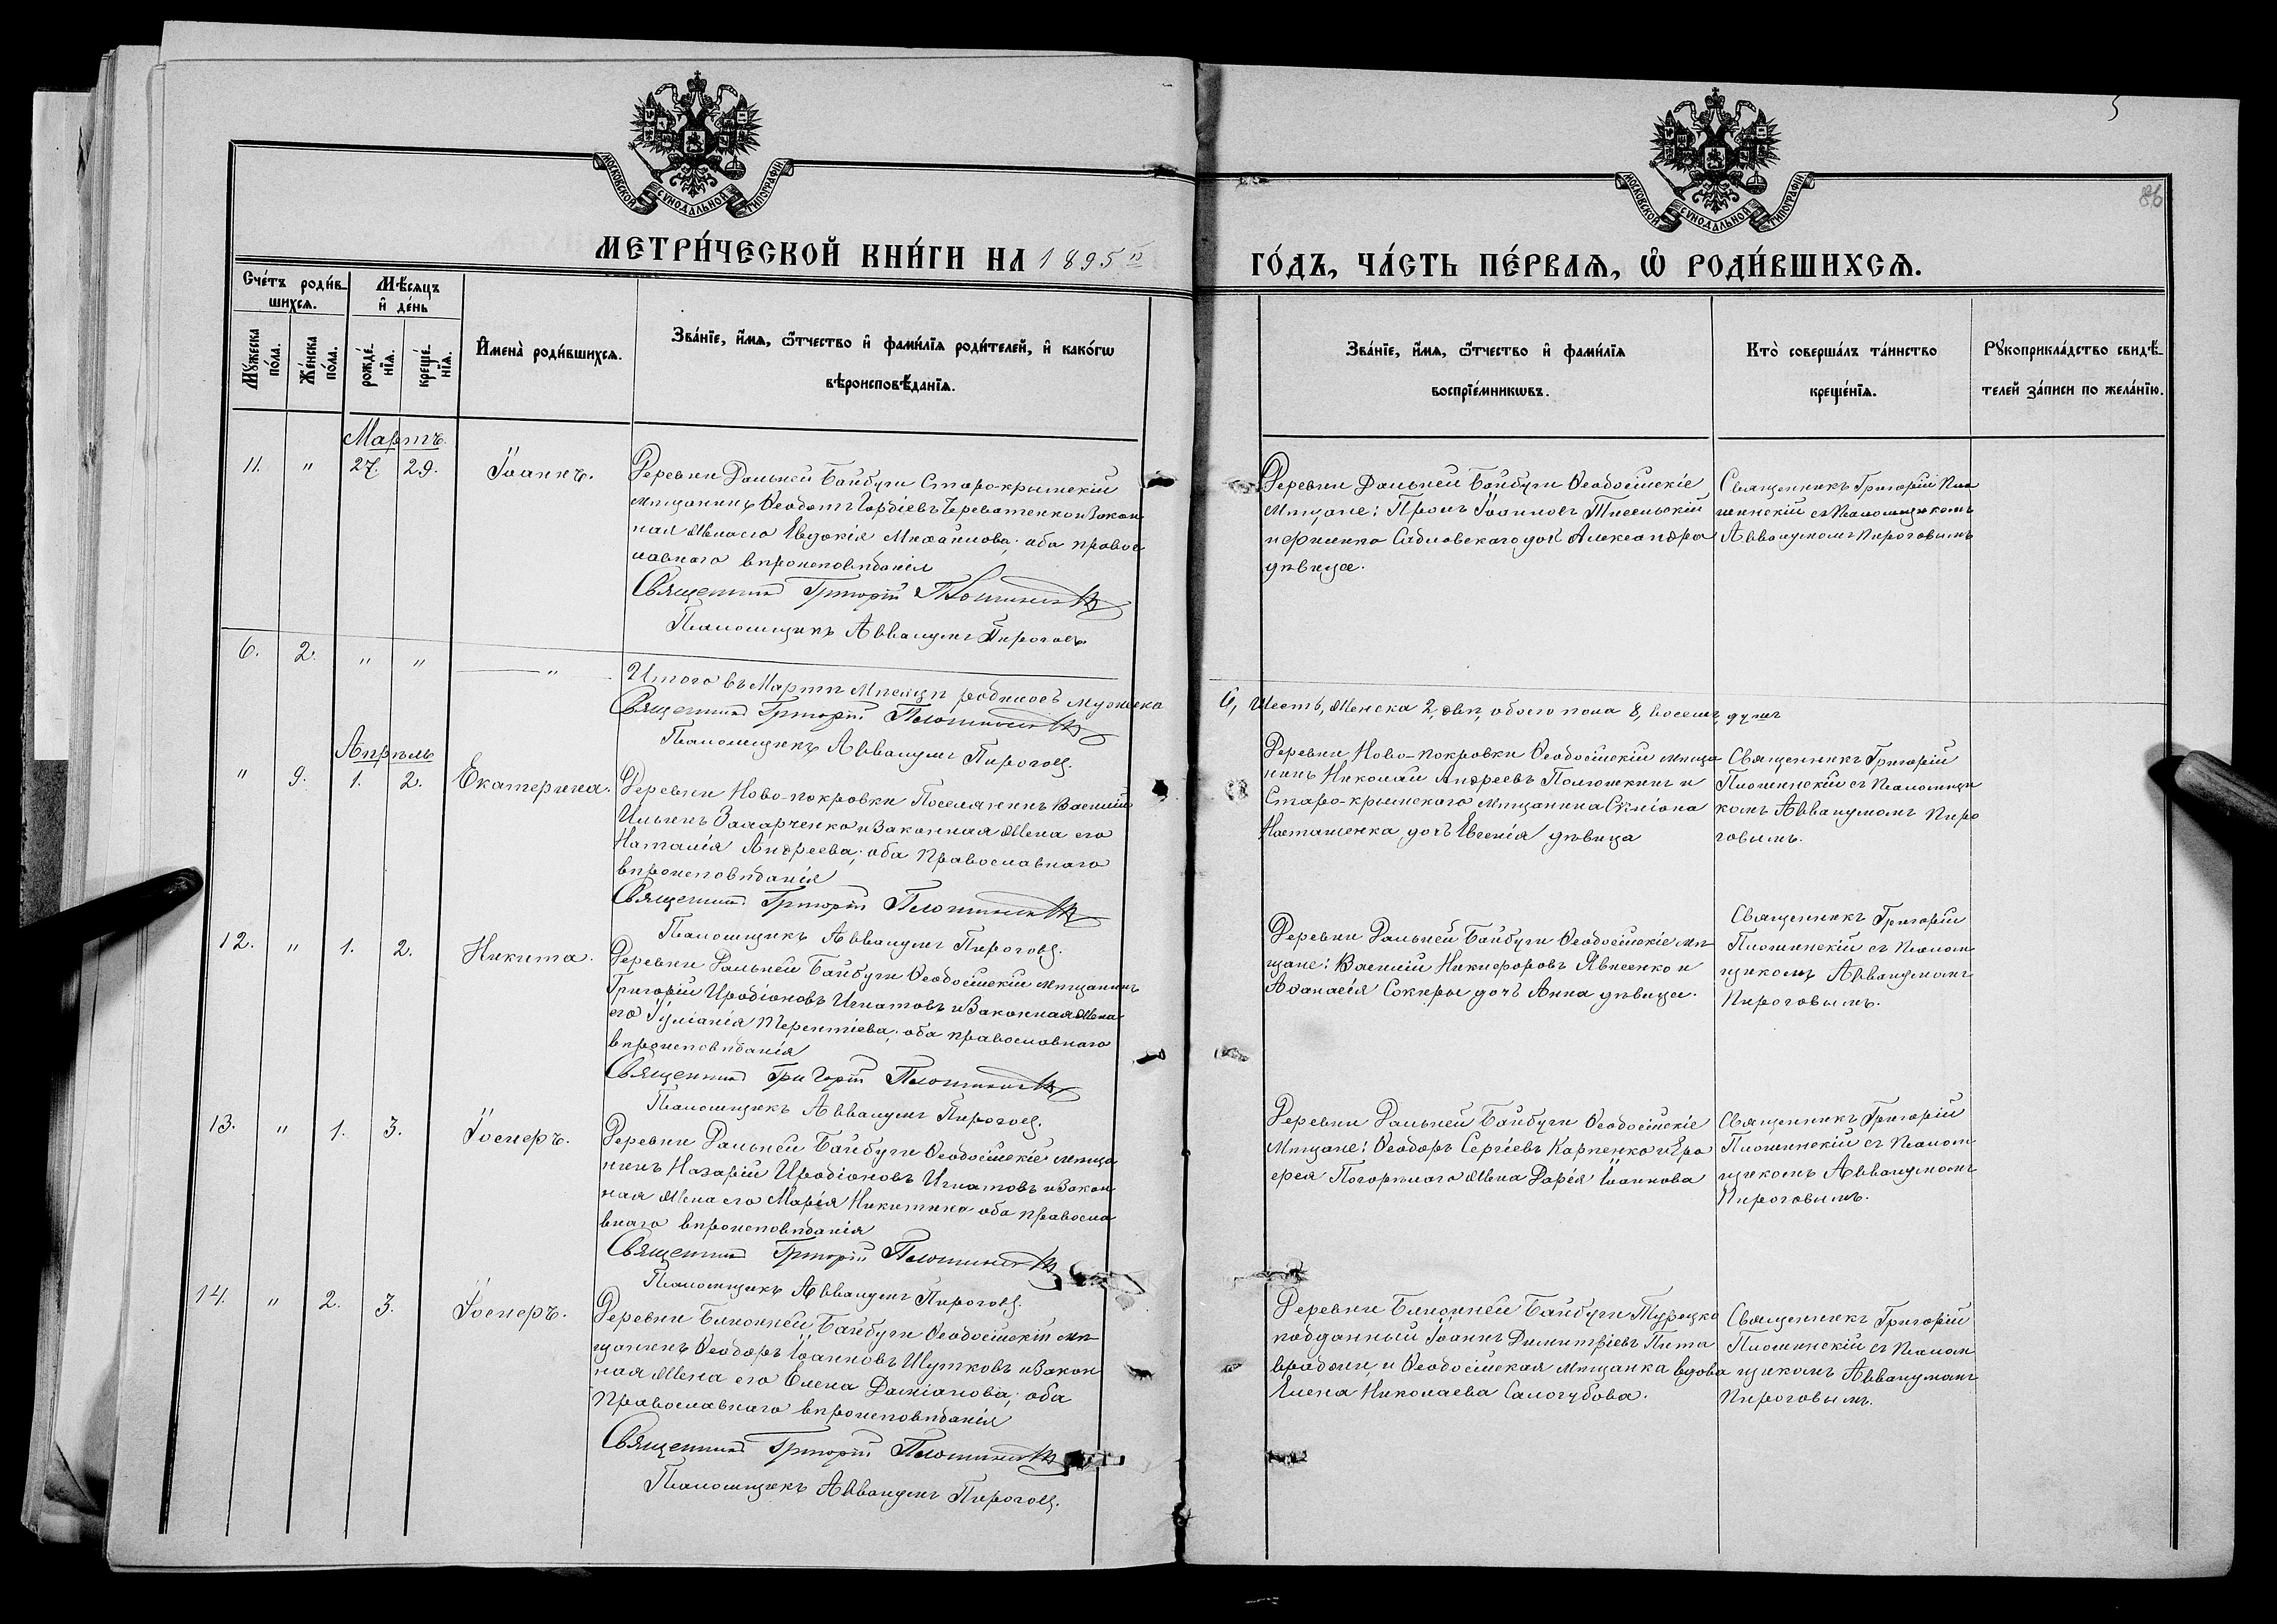 5
86
МОСКОВСКОЙ СѴНОДАЛЬНОЙ ТИПОГРАФІИ
МОСКОВСКОЙ СѴНОДАЛЬНОЙ ТИПОГРАФІИ
МЕТРИ́ЧЕСКОЙ КНИ́ГИ НА 1895 й
ГО́ДЪ, ЧА́СТЬ ПЕ́РВАѦ, Ѡ҆ РОДИ́ВШИХСѦ.
Сче́тъ роди́в-
шихсѧ.
Мѣ́сѧцъ
и҆ де́нь
Мꙋ́жеска по́ла.
Же́нска по́ла.
рожде́-нїѧ.
креще́-нїѧ.
И҆мена̀ роди́вшихсѧ.
Зва́нїе, и҆́мѧ, ѻ҆́тчество и҆ фами́лїѧ роди́телей, и҆ како́гѡ
вѣроисповѣ́данїѧ.
Зва́нїе, и҆́мѧ, ѻ҆́тчество и҆ фами́лїѧ
воспрїе́мникѡвъ.
Кто̀ соверша́лъ та́инство
креще́нїѧ.
Рꙋкоприкла́дство свидѣ́-
телей за́писи по жела́нїю.
Мартъ.
11. " 27. 29. Іоаннъ.
Деревни Дальней Байбуги Старо-крымскій
мѣщанинъ Ѳеодотъ Гордіевъ Череватенко и закон
ная жена его Евдокія Михаилова; оба правос
лавнаго вѣроисповѣданія
Священникъ Григорій Плошинскій
Псаломщикъ Аввакумъ Пироговъ.
Деревни Дальней Байбуги Ѳеодосійскіе
Мѣщане: Прокъ Іоанновъ
Савловскаго дочь Александра
дѣвица.
Священникъ Григорій Пло
шинскій съ Псаломщикомъ
Аввакумомъ Пироговымъ
6. 2. " " "
Итого въ Мартѣ Мѣсяцѣ родилось мужеска
6, шесть, женска 2, двѣ, обоего пола 8, восемь, душъ
Священникъ Григорій Плошинскій
Псаломщикъ Аввакумъ Пироговъ.
Апрѣль
" 9. 1. 2. Екатерина.
Деревни Ново-покровки Поселянинъ Василій
Ильинъ Захарченко и законная жена его
Наталія Андреева; оба Православнаго
вѣроисповѣданія
Священникъ Григорій Плошинскій
Псаломщикъ Аввакумъ Пироговъ.
Деревни Ново-покровки Ѳеодосійскій мѣща
нинъ Николай Андреевъ Полюшкинъ и
Старо-крымскаго мѣщанина Сѵмеона
дочь Евгенія дѣвица
Священникъ Григорій
Плошинскій съ Псаломщи
комъ Аввакумомъ Пиро
говымъ.
12. " 1. 2. Никита.
Деревни Дальней Байбуги Ѳеодосійскій мѣщанинъ
Григорій Иродіоновъ Игнатовъ и законная жена
его Іуліанія Терентіева; оба православнаго
вѣроисповѣданія
Священникъ Григорій Плошинскій
Псаломщикъ Аввакумъ Пироговъ.
Деревни Дальней Байбуги Ѳеодосійскіе мѣ
щане: Василій Никифоровъ Явисенко и
Аѳанасія Соккры дочь Анна дѣвица.
Священникъ Григорій
Плошинскій съ Псалом
щикомъ Аввакумомъ
Пироговымъ.
13. " 1. 3. Іосифъ.
Деревни Дальней Байбуги Ѳеодосійскіе мѣща
нинъ Назарій Иродіоновъ Игнатовъ и закон
ная жена его Марія Никитина оба правосла
внаго вѣроисповѣданія
Священникъ Григорій Плошинскій
Псаломщикъ Аввакумъ Пироговъ.
Деревни Дальней Байбуги Ѳеодосійскіе
Мѣщане: Ѳеодоръ Сергіевъ Карпенко и Ера
Погорѣлаго жена Дарія Іоаннова
Священникъ Григорій
Плошинскій съ Псалом
щикомъ Аввакумомъ
Пироговымъ.
14. " 2. 3. Іосифъ.
Деревни Ближней Байбуги Ѳеодосійскій мѣ
щанинъ Ѳеодоръ Іоанновъ Шутковъ и закон
ная жена его Елена Даміанова; оба
Православнаго вѣроисповѣданія
Священникъ Григорій Плошинскій
Псаломщикъ Аввакумъ Пироговъ.
Деревни Ближней Байбуги Турецко
подданный Іоаннъ Димитріевъ
и Ѳеодосійская мѣщанка вдова
Елена Николаева Самогубова.
Священникъ Григорій
Плошинскій съ Псалом
щикомъ Аввакумомъ
Пироговымъ.